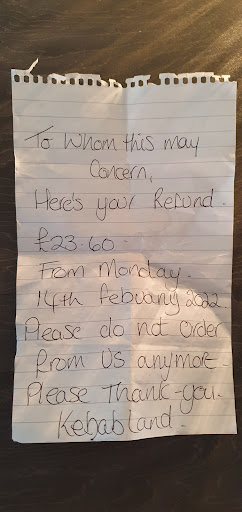 To Whom this may
Concern,
Here's your Refund.
£23.60.
From Monday.
14th February 2022
Please do not order
From Us anymore.
Please Thank-you.
Kebabland.